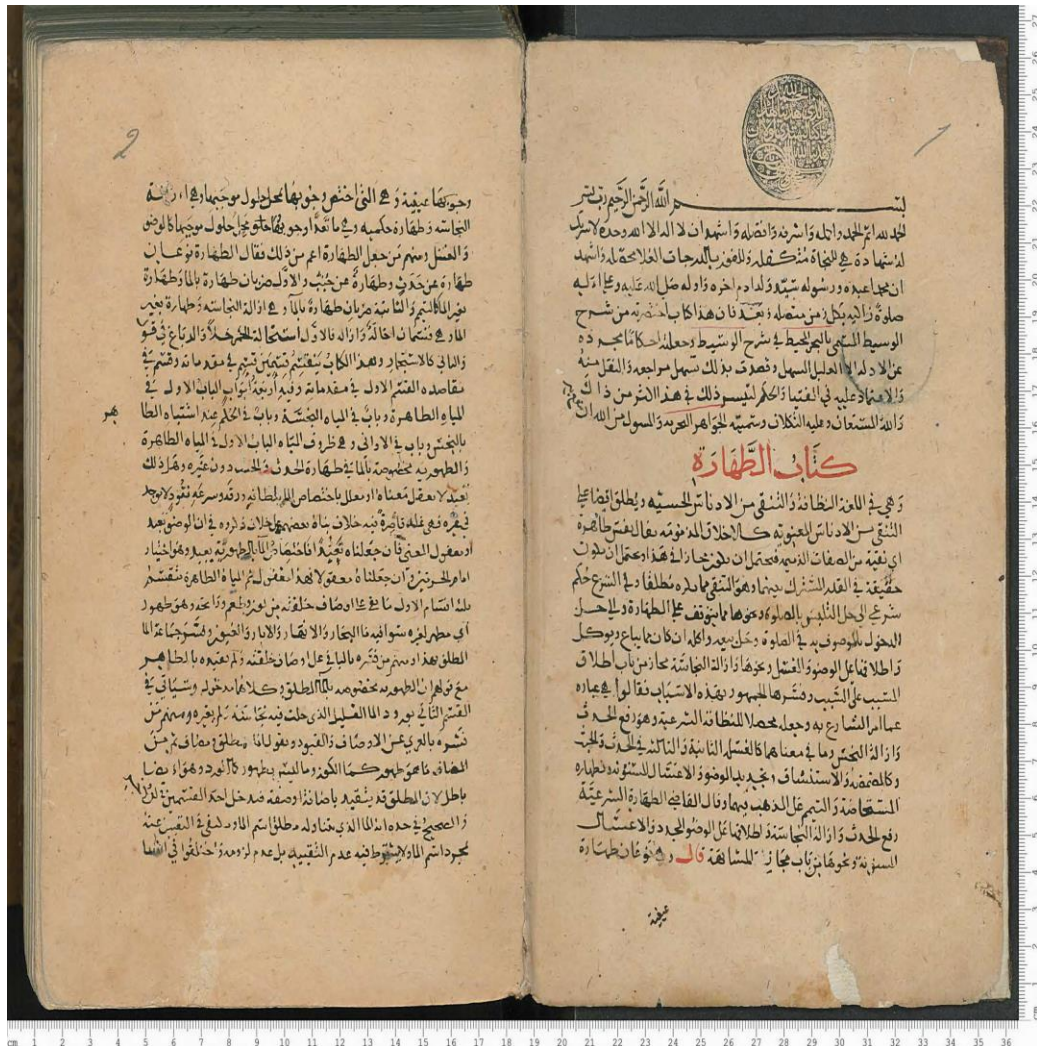 1
بسم الله الرحمن الرحيم رب يسر
الحمد لله اتم الحمد واكمله واشرفه وافضله واشهد ان لا اله الا الله وحده لا شريك
له شهادة هي للنجاة متكفله وللفوز بالدرجات العلا محصله واشهد
ان محمدا عبده ورسوله سيد ولد ادم اخره واوله صلى الله عليه وعلى اله
صلوة زاكية بعد فان هذا كتاب اختصرته من شرح
الوسيط المسمى بالبحر المحيط في شرح الوسيط وجعلته احكاما مجرده
عن الادلة الا القليل السهل وقصدت بذلك تسهل مراجعه والنقل منه
والاعتماد عليه في الفتيا والحكم لتيسر ذلك في هذا اكثر من ذاك
والله المستعان وعليه التكلان وسميته الجواهر البحريه والمسول من الله ان
كتاب الطهارة
وهي في اللغة النظافة والتنقي من الادناس الحسيه ويطلق ايضا على
التنقي من الادناس المعنوية كالاخلاق المذمومه يقال نفس طاهرة
اي نقية من الصفات الذميمه فيحتمل ان يكون مجازا في هذا ويحتمل ان يكون
حقيقة في القدر المشترك بينهما وهو التنقي مما يكره مطلقا وفي الشرع حكم
شرعي الى حل التلبس بالصلوة ونحوها مما يتوقف على الطهارة ولي حل
الدخول بالموصوف به في الصلوة وحل بيعه واكله ان كان مما يباع ويوكل
واطلاقها على الوضو والغسل ونحوها وازالة النجاسة مجاز من باب اطلاق
المسبب على السبب وفسرها الجمهور بهذه الاسباب فقالوا هي عباره
عما امر الشارع به وجعله محصلا للنظافة الشرعية وهو رفع الحدث
وازالة النجس وما في معناهما كالغسلة الثانية والثالثة في الحدث والخبث
وكالمضمضة والاستنشاق وتجديد الوضو والاغتسال المسنونه وطهارة
المستحاضة والتيمم على المذهب فيهما وقال القاضي الطهارة الشرعية
رفع الحدث وازالة النجاسة واطلاقها على الوضو المجدد والاغتسال
المسنونة ونحوها من باب مجاز المشابهة قال وهي نوعان طهارة
عينية
2
وجوبها عينية وهي التي اختص وجوبها بمحل حلول موجبها وهي ازالة
النجاسه وطهارة حكميه وهي ما تعدا وجوبها محل حلول موجبها كالوضو
والغسل ومنهم من جعل الطهارة اعم من ذلك فقال الطهارة نوعان
طهارة عن حدث وطهارة عن خبث والاول ضربان طهارة بالما وطهارة
بغير الما كالتيمم والثانية ضربان طهارة بالما وهي ازالة النجاسه وطهارة بغير
الما وهي قسمان احالة وازاله فالاول استحالة الخمر خلا والدباغ في
والثاني كالاستنجار وهذا الكتاب ينقسم قسمين قسم في مقدماته وقسم في
مقاصده القسم الاول في مقدماته وفيه اربعة ابواب الباب الاول في
المياه الطاهرة وباب في المياه النجسة وباب في الحكم عند اشتباه الطاهر
بالنجس وباب في الاواني وهي ظروف المياه الباب الاول في المياه الطاهرة
والطهورية مخصوصة بالما في طهارة الحدث والخبث دون غيره وهل ذلك
تعبد لا يعقل معناه او معلل باختصاص الما بلطافه ورقه وسرعة نفوذ لا توجد
في غيره فهي علة قاصرة فيه خلاف بناه بعضهم على خلاف ذكروه في ان الوضو تعبد
او معقول المعنى فان جعلناه تعبدا فاختصاص الما بالطهورية تعبد وهو اختيار
امام الحرمين وان جعلناه معقولا فهذا معقول ثم المياه الطاهرة تنقسم
ثلثة اقسام الاول ما بقي على اوصاف خلقته من لون وطعم ورائحه وهو طهور
اي مطهر لغيره سوا فيه ما البحار والانهار والابار والعيون وفسر جماعة الما
المطلق بهذا ومنهم من فسره بالباقي على اوصاف خلقته ولم يقيده بالطاهر
مع قولهم ان الطهورية مخصوصه بالما المطلق وكلاهما مدخول وسياتي في
القسم الثاني نورود الما القليل الذي حلت فيه نجاسة ولم يغيره ومنهم من
فسره بالعري عن الاوصاف والقيود وبقولنا ما مطلق ومضاف ثم من
المضاف ما هو طهور كما الكوز وما ليس بطهور كما الورد وهو ايضا
باطل لان المطلق قد يتقيد باضافة او صفة فيدخل احد القسمين
والصحيح في حده انه الما الذي يتناوله مطلق اسم الما ويكتفى في التعبير عنه
بمجرد اسم الما ولا يشترط فيه عدم التقييد بل عدم لزومه واختلفوا في